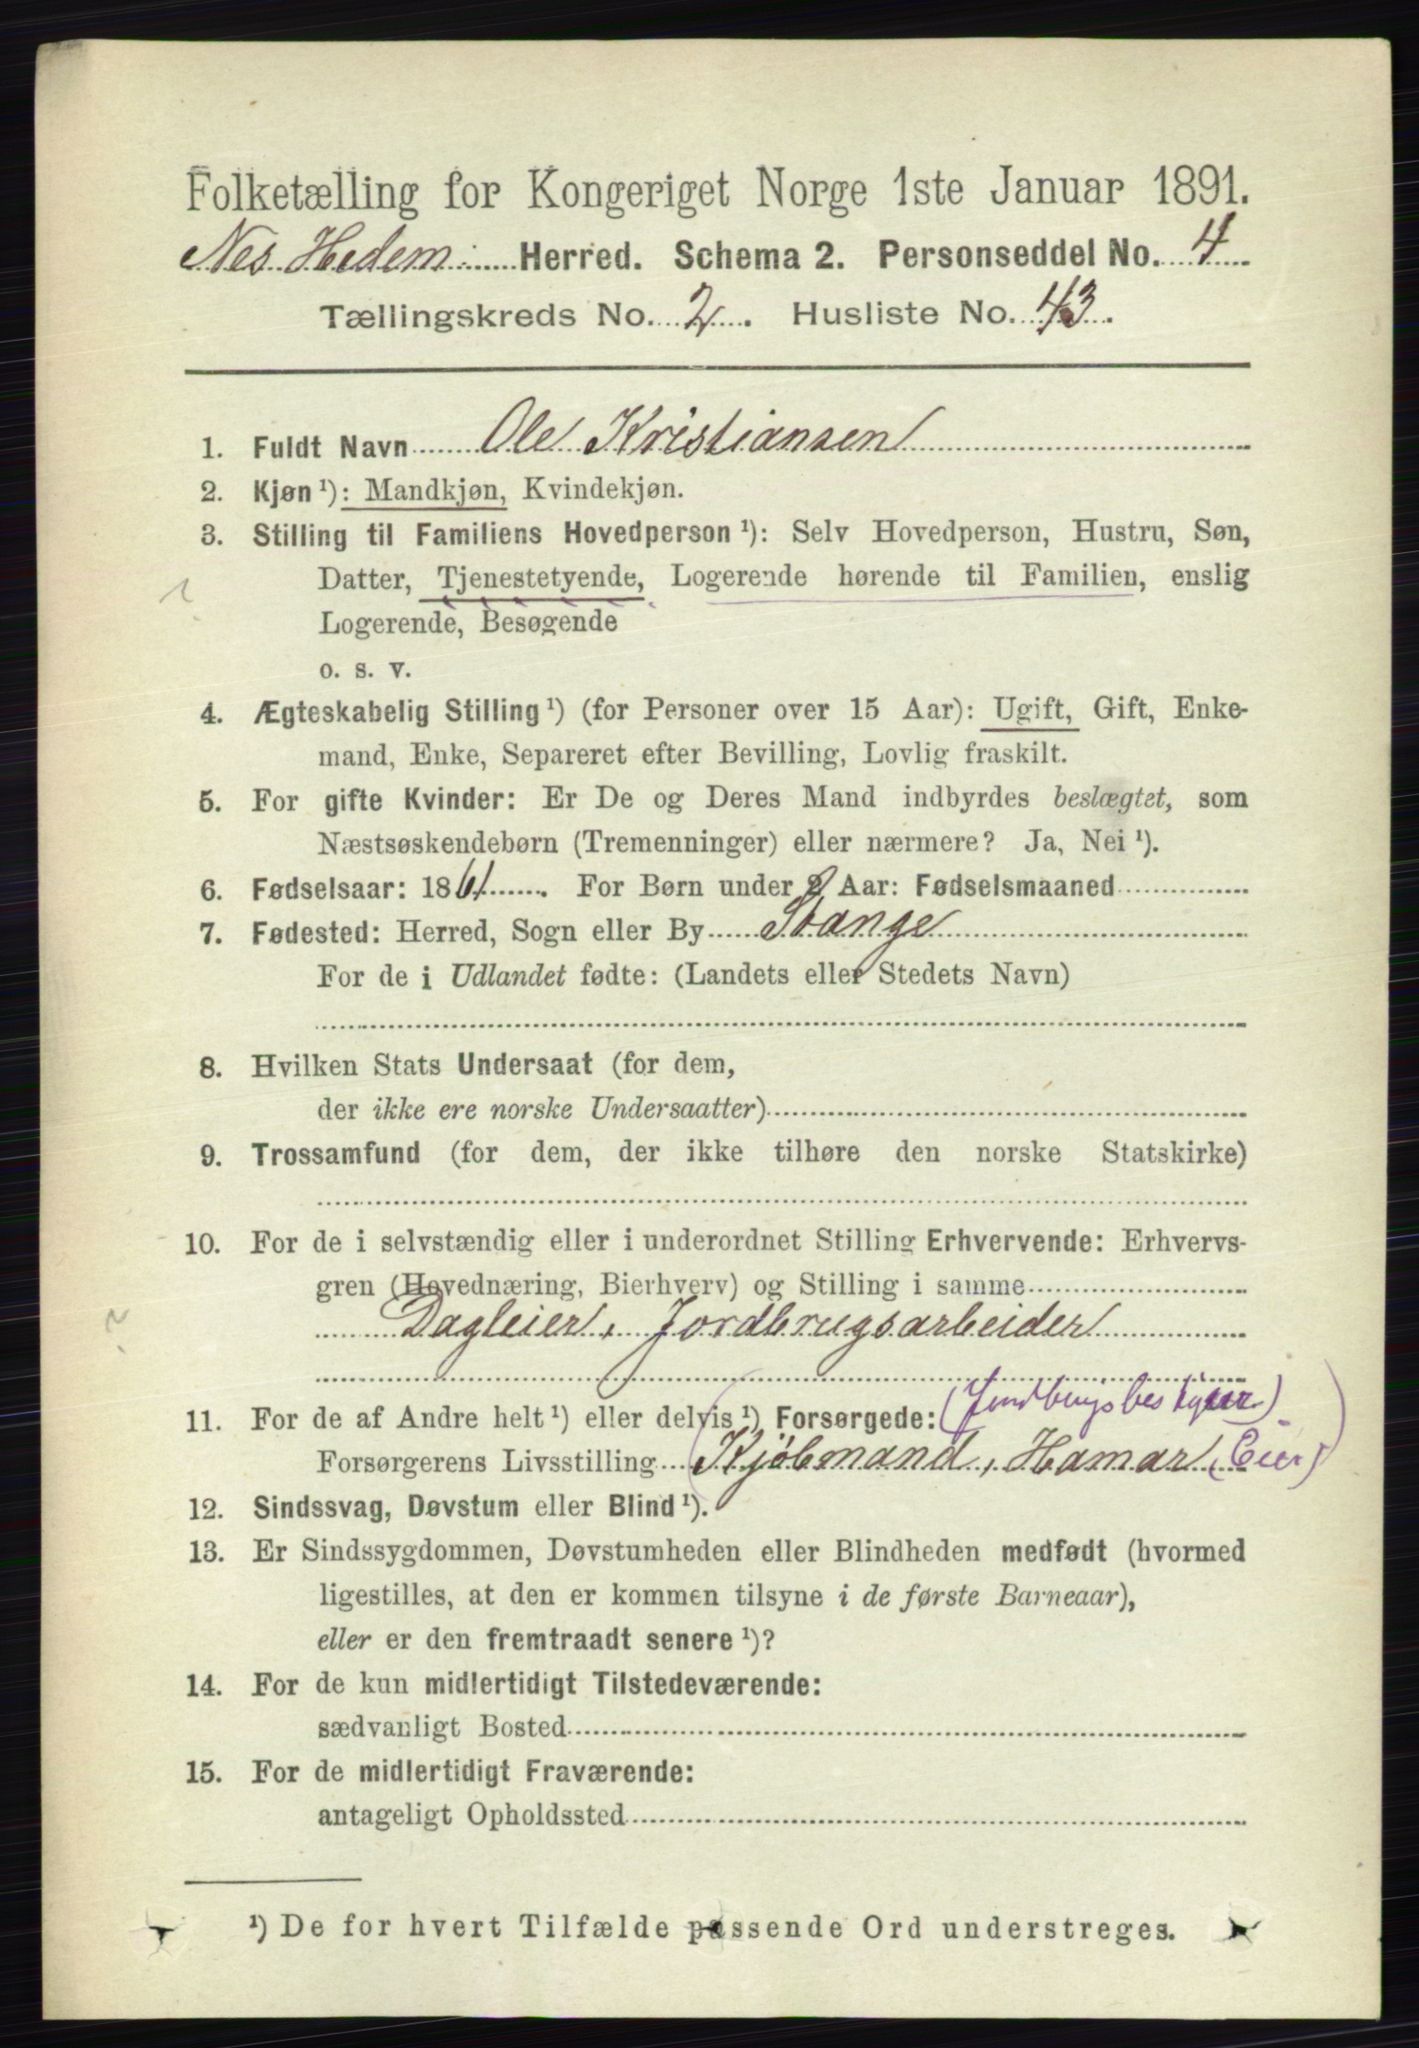 Folketælling for Kongeriget Norge 1ste Januar 1891.
Nes Hedem. Herred. Schema 2. Personseddel No. 4
Tællingskreds No. 2. Husliste No. 43.
1. Fuldt Navn Ole Kristiansen
2. Kjøn ¹): Mandkjøn, Kvindekjøn.
3. Stilling til Familiens Hovedperson ¹): Selv Hovedperson, Hustru, Søn,
Datter, Tjenestetyende, Logerende hørende til Familien, enslig
Logerende, Besøgende
o. s. v.
4. Ægteskabelig Stilling ¹) (for Personer over 15 Aar): Ugift, Gift, Enke-
mand, Enke, Separeret efter Bevilling, Lovlig fraskilt.
5. For gifte Kvinder: Er De og Deres Mand indbyrdes beslægtet, som
Næstsøskendebørn (Tremenninger) eller nærmere? Ja, Nei ¹).
6. Fødselsaar: 1861. For Børn under 2 Aar: Fødselsmaaned
7. Fødested: Herred, Sogn eller By Stange
For de i Udlandet fødte: (Landets eller Stedets Navn)
8. Hvilken Stats Undersaat (for dem,
der ikke ere norske Undersaatter)
9. Trossamfund (for dem, der ikke tilhøre den norske Statskirke)
10. For de i selvstændig eller i underordnet Stilling Erhvervende: Erhvervs-
gren (Hovednæring, Bierhverv) og Stilling i samme
Dagleier, Jordbrugsarbeider
11. For de af Andre helt ¹) eller delvis ¹) Forsørgede: (Jordbrugsbestyrer)
Forsørgerens Livsstilling (Kjøbmand, Hamar (Eier)
12. Sindssvag, Døvstum eller Blind ¹).
13. Er Sindssygdommen, Døvstumheden eller Blindheden medfødt (hvormed
ligestilles, at den er kommen tilsyne i de første Barneaar),
eller er den fremtraadt senere ¹)?
14. For de kun midlertidigt Tilstedeværende:
sædvanligt Bosted
15. For de midlertidigt Fraværende:
antageligt Opholdssted
¹) De for hvert Tilfælde passende Ord understreges.